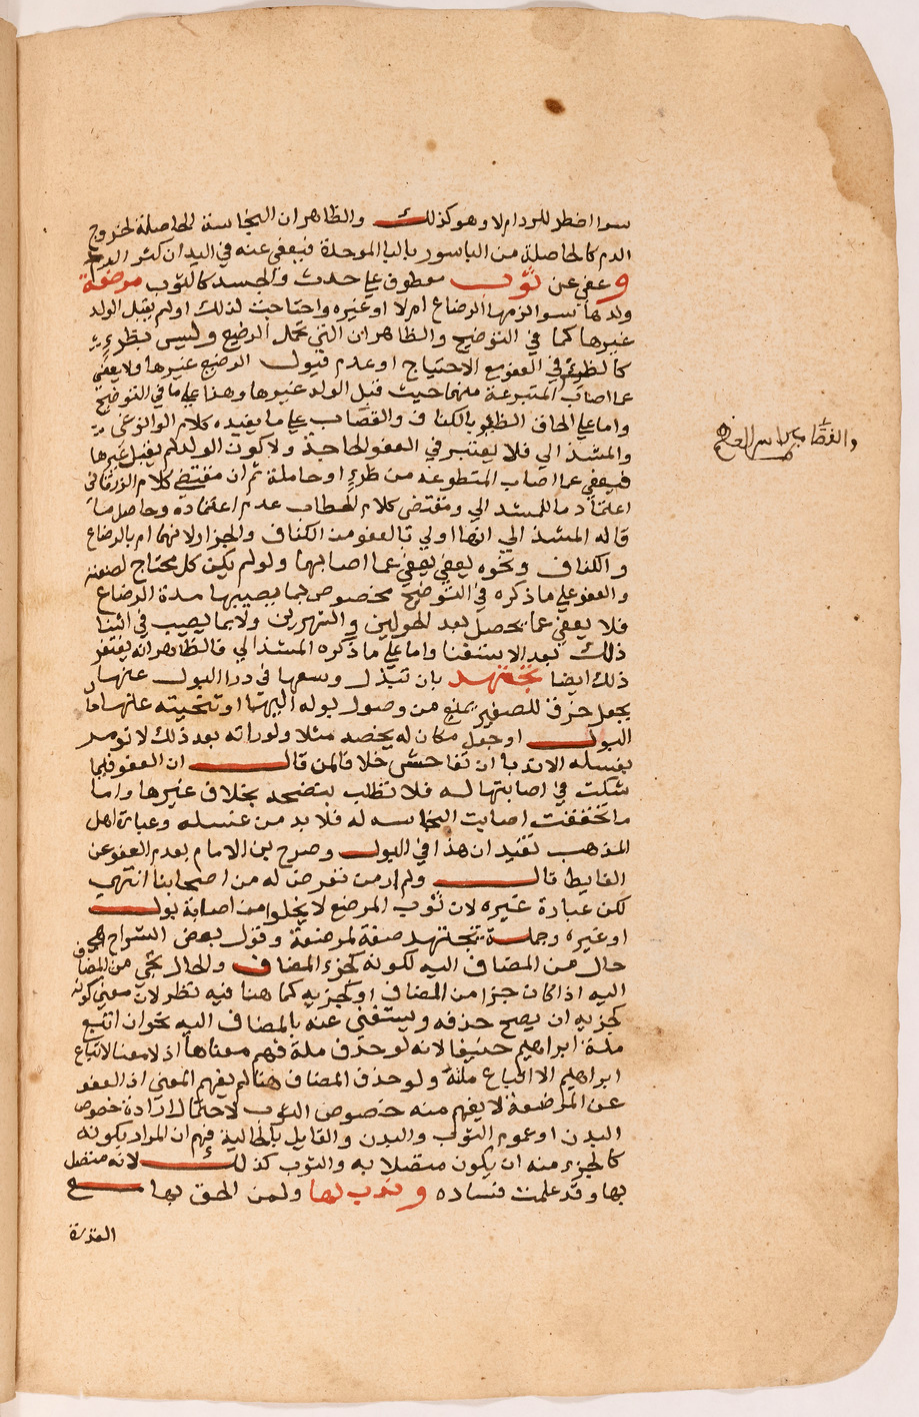 سوا اضطر للرد ام لا وهو كذلك والظاهر ان النجاسة الحاصلة لخروج
الدم كالحاصلة من الباسور بالبا الموحدة فيعفى عنه في اليد ان كثر الدم
و عفي عن ثوب معطوف علي حدث والجسد كالثوب مرضعة
ولدها سوا لزمها الرضاع ام لا او غيره واحتاجت لذلك او لم يقبل الولد
غيرها كما في التوضيح والظاهر ان التي تحمل الرضيع وليس بظرء
كالظئر في العفو مع الاحتياج او عدم قبول الرضيع غيرها ولا يعفى
عما اصاب المتبرعة منهما حيث قبل الولد غيرها وهذا علي ما في التوضيح
واما علي الحاق الظئر بالكناف والقصاب علي ما يفيده كلام الوانوغي
والمشذالي فلا يعتبر في العفو الحاجة ولا كون الولد لم يقبل غيرها
فيعفي عما اصاب المتطوعة من ظرء او حاملة ثم ان مقتضى كلام الزرقاني
اعتماد ما للمشدالي ومقتضى كلام الحطاب عدم اعتماده وحاصل ما
قاله المشذالي انها اولي بالعفو من الكناف والجزار لانهما ام بالرضاع
والكناف ونحوه يعفي يعفي عما اصابهما ولو لم يكن كل محتاج لصنعته
والعفو علي ما ذكره في التوضيح مخصوص بما يصيبها مدة الرضاع
فلا يعفي عما يحصل بعد الحولين والشهرين ولا بما يصيب في اثنا
ذلك بعد الاستغنا واما علي ما ذكره المشذالي فالظاهر انه يغتفر
ذلك ايضا تجتهد بان تبذل وسعها في درا البول عنها
يجعل خرق للصغير تمنع من وصول بوله اليها او تنحيته عنها حال
البول او جعل مكان له يخصه مثلا ولو راته بعد ذلك لا تومر
بغسله الا ندبا ان تفاحش خلافا لمن قال ان العفو فيما
شكت في اصابتها له فلا تطلب بنضحه بخلاف غيرها واما
ما تحققت اصابت النجاسه له فلا بد من غسله وعبارة اهل
المذهب تفيد ان هذا في البول وصرح بن الامام بعدم العفو عن
الغايط قال ولم ار من تعرض له من اصحابنا انتهي
لكن عبارة غيره لان ثوب المرضع لا يخلوا من اصابة بول
او غيره وجملة تجتهد صفة لمرضعة وقول بعض الشراح هي
حال من المضاف اليه لكونه كجزء المضاف والحال تجي من المضاف
اليه اذا كان جزا من المضاف او كجزيه كما هنا فيه نظر لان معني كونه
كجزيه ان يصح حذفه ويستغني عنه بالمضاف اليه نحو ان اتبع
ملة ابراهيم حنيفا لانه لو حذف ملة فهم معناها اذ لا معنا لاتباع
ابراهيم الا اتباع ملته ولو حذف المضاف هنا لم يفهم المعني اذ العفو
عن المرضعة لا يفهم منه خصوص الثوب لاحتمال ارادة خصوص
البدن او عموم الثوب والبدن والقايل بالحالية فهم ان المراد بكونه
كالجزء منه ان يكون متصلا به والثوب كذلك لانه متصل
بها وقد علمت فساده وندب لها ولمن الحق بها مع
القدرة
والقصاب